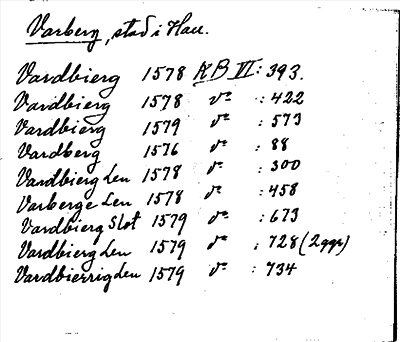 Varberg, stad i Hall.
Vardbierg 1578 KB VI: 393.
Vardbierg 1578 do : 422
Vardbierg 1579 do : 573
Vardberg 1576 do : 88
Vardbierg Len 1578 do : 300
Varberge Len 1578 do : 458
Vardbierg Slot 1579 do : 673
Vardbierg Len 1579 do : 728 (2 ggr)
Vardbierrig Len 1579 do : 734